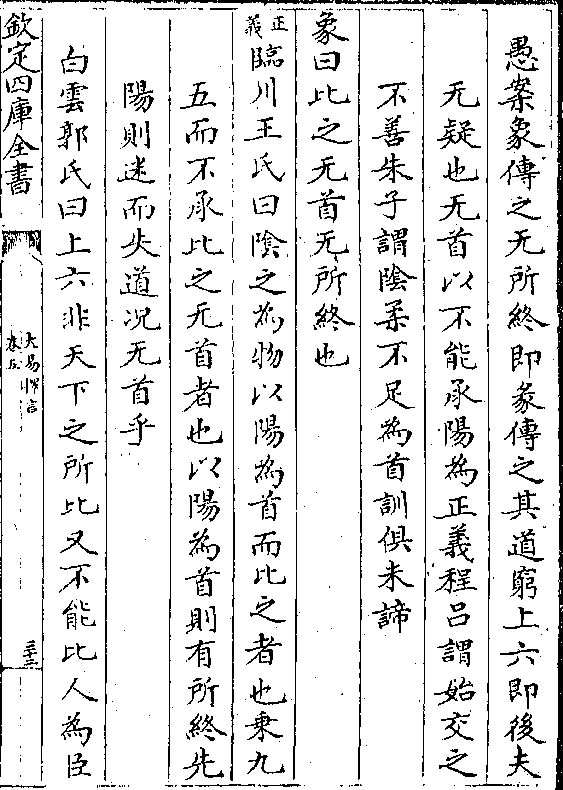 愚案象傳之无所終即彖傳之其道窮上六即後夫
无疑也无首以不能承陽為正義程吕謂始交之
不善朱子謂陰柔不足為首訓俱未諦
象曰比之无首无所終也
正義臨川王氏曰陰之為物以陽為首而比之者也乘九
五而不承比之无首者也以陽為首則有所終先
陽則迷而失道况无首乎
白雲郭氏曰上六非天下之所比又不能比人為臣
欽定四庫全書
大易擇言
卷五
三十三